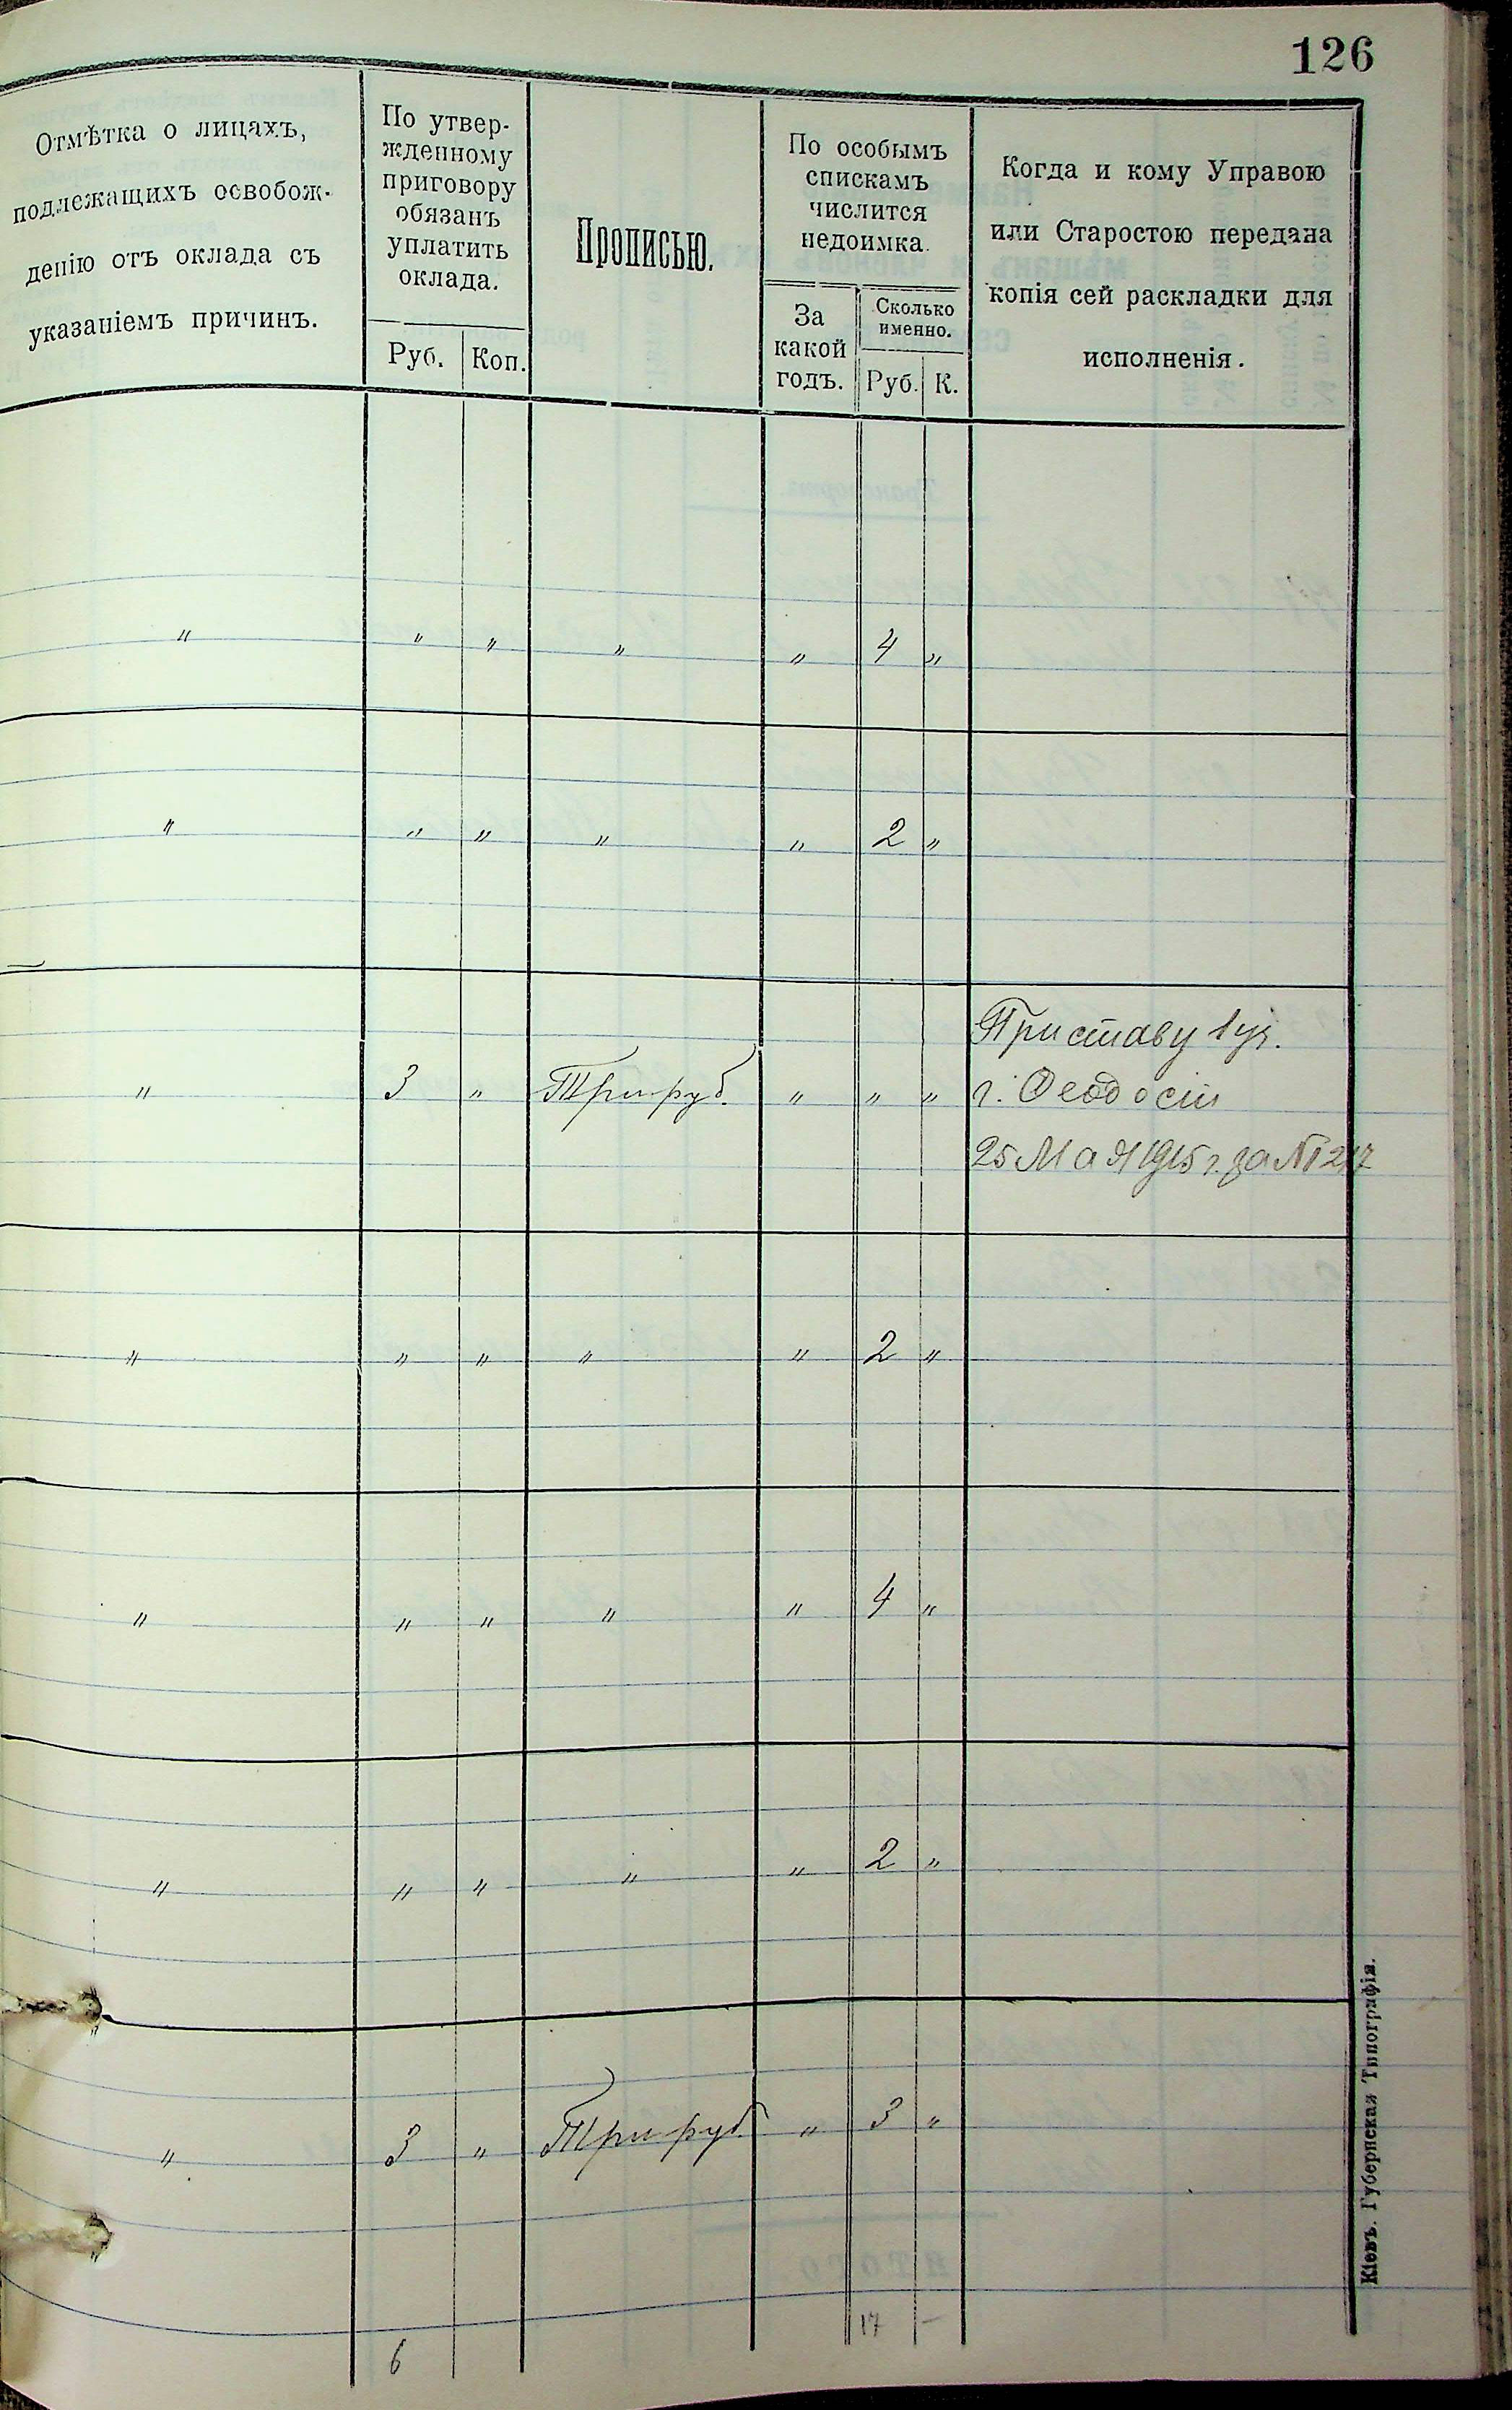 126
Отмѣтка о лицахъ,
подлежащихъ освобож-
денію отъ оклада съ
указаніемъ причинъ.
По утвер-
жденному
приговору
обязанъ
уплатить
оклада.
Руб. Коп.
Прописью.
По особымъ
спискамъ
числится
недоимка.
За
какой
годъ.
Сколько
именно.
Руб. К.
Когда и кому Управою
или Старостою передана
копія сей раскладки для
исполненія.
" " " " " 4 "
" " " " " 2 "
Приставу 1 уч.
" 3 " Три руб. " " " г. Ѳеодосіи
25 Мая 1915 г. за №
" " " " " 2 "
" " " " " 4 "
" " " " " 2 "
" 3 " Три руб " 3 "
6 17 —
Кіевъ. Губернская Типографія.